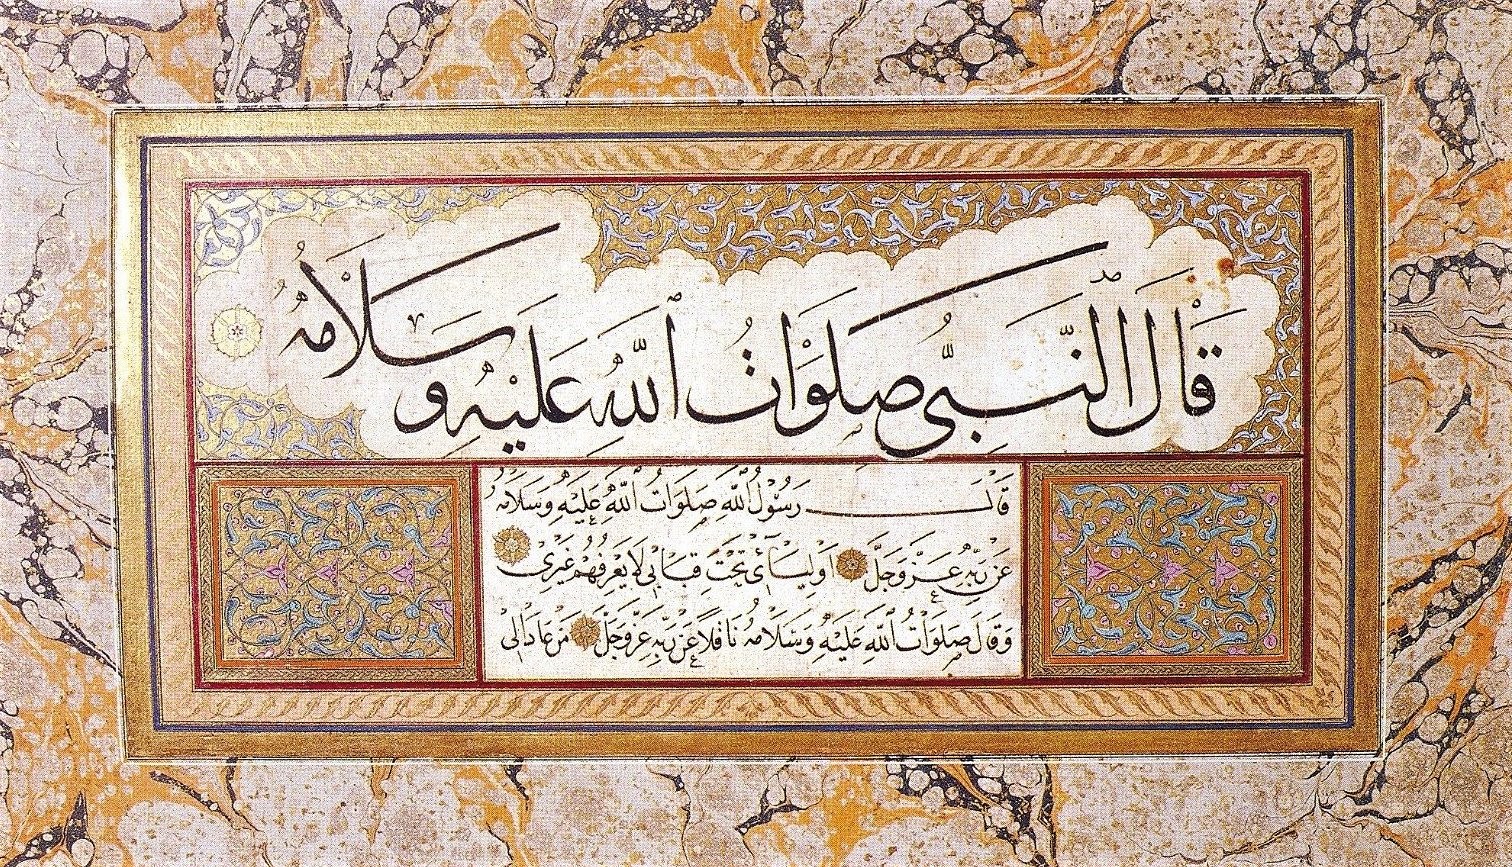 قَالَ النَّبِيُّ صَلَوَاتُ اللهِ عَلَيْهِ وَسَلَامُهُ
قَالَ رَسُوْلُ اللهِ صَلَوَاتُ اللهِ عَلَيْهِ وَسَلَامُهُ
عَنْ رَبِّهِ عَزَّ وَجَلَّ اَوْلِيَائِي تَحْتَ قِبَابِي لَا يَعْرِفُهُمْ غَيْرِي
وَقَالَ صَلَوَاتُ اللهِ عَلَيْهِ وَسَلَامُهُ نَاقِلًا عَنْ رَبِّهِ عَزَّ وَجَلَّ مَنْ عَادَا لِي